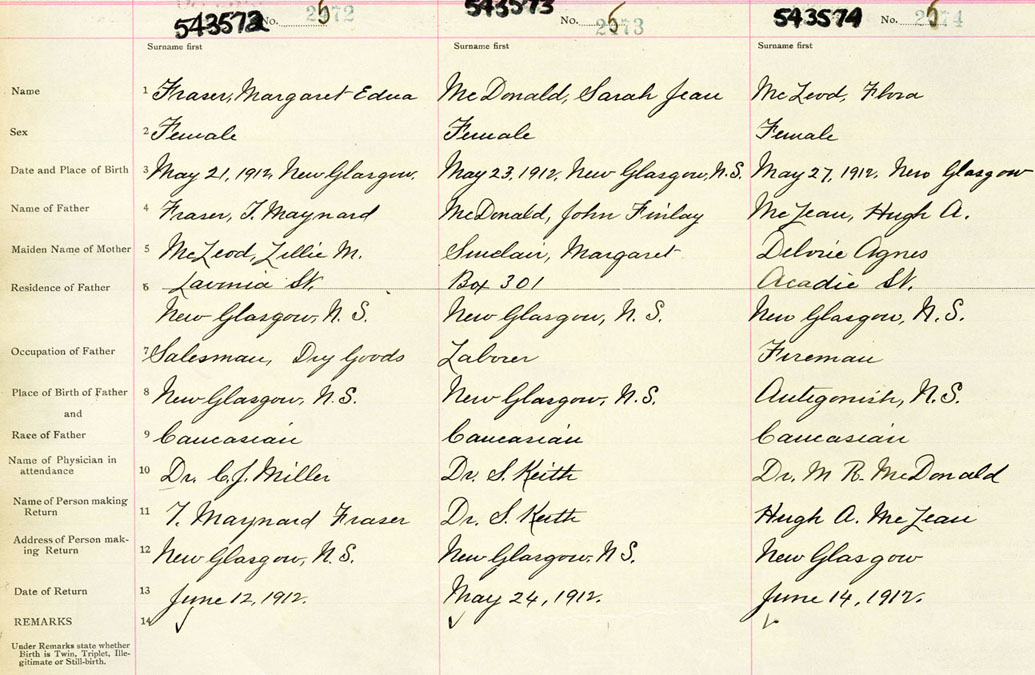 543572 No. 5 2572 543573 No. 5 2573 543574 No. 5 2574
Surname first Surname first Surname first
Name 1 Fraser, Margaret Edna McDonald, Sarah Jean McLeod, Flora
Sex 2 Female Female Female
Date and Place of Birth 3 May 21, 1912, New Glasgow. May 23, 1912, New Glasgow, N.S. May 27, 1912, New Glasgow
Name of Father 4 Fraser, T. Maynard McDonald, John Finlay McLean, Hugh A.
Maiden Name of Mother 5 McLeod, Lillie M. Sinclair, Margaret Delorie Agnes
Residence of Father 6 Lavinia St. Box 301 Acadie St.
New Glasgow, N.S. New Glasgow, N.S. New Glasgow, N.S.
Occupation of Father 7 Salesman, Dry Goods Laborer Fireman
Place of Birth of Father 8 New Glasgow, N.S. New Glasgow, N.S. Antigonish, N.S.
and
Race of Father 9 Caucasian Caucasian Caucasian
Name of Physician in
attendance 10 Dr. C. J. Miller Dr. S. Keith Dr. M R. McDonald
Name of Person making
Return 11 T. Maynard Fraser Dr. S. Keith Hugh A. McLean
Address of Person mak-
ing Return 12 New Glasgow, N.S. New Glasgow, N.S. New Glasgow
Date of Return 13 June 12, 1912. May 24, 1912. June 14, 1912.
REMARKS 14
Under Remarks state whether
Birth is Twin, Triplet, Ille-
gitimate or Still-birth.